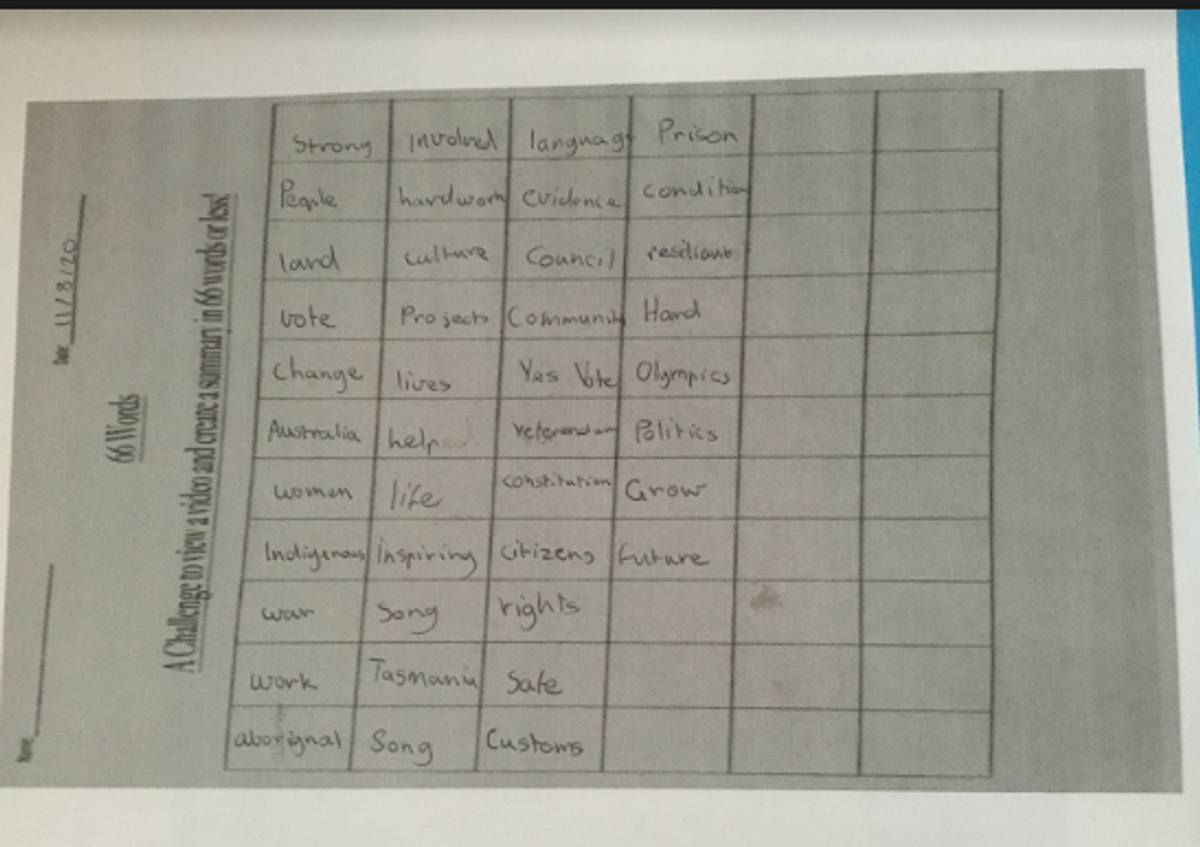 Name
Date 11/8/20
66 Words
A Challenge to view a video and create a summary in 66 words or less!
Strong Involved languag Prison
People hardwork evidence condition
land culture Council resiliant
vote Projects Community Hard
Change lives Yes Vote Olympics
Australia helped referendum Politics
women life constitution Grow
Indigenous inspiring citizens future
war Song rights
work Tasmania Safe
aborignal Song Customs